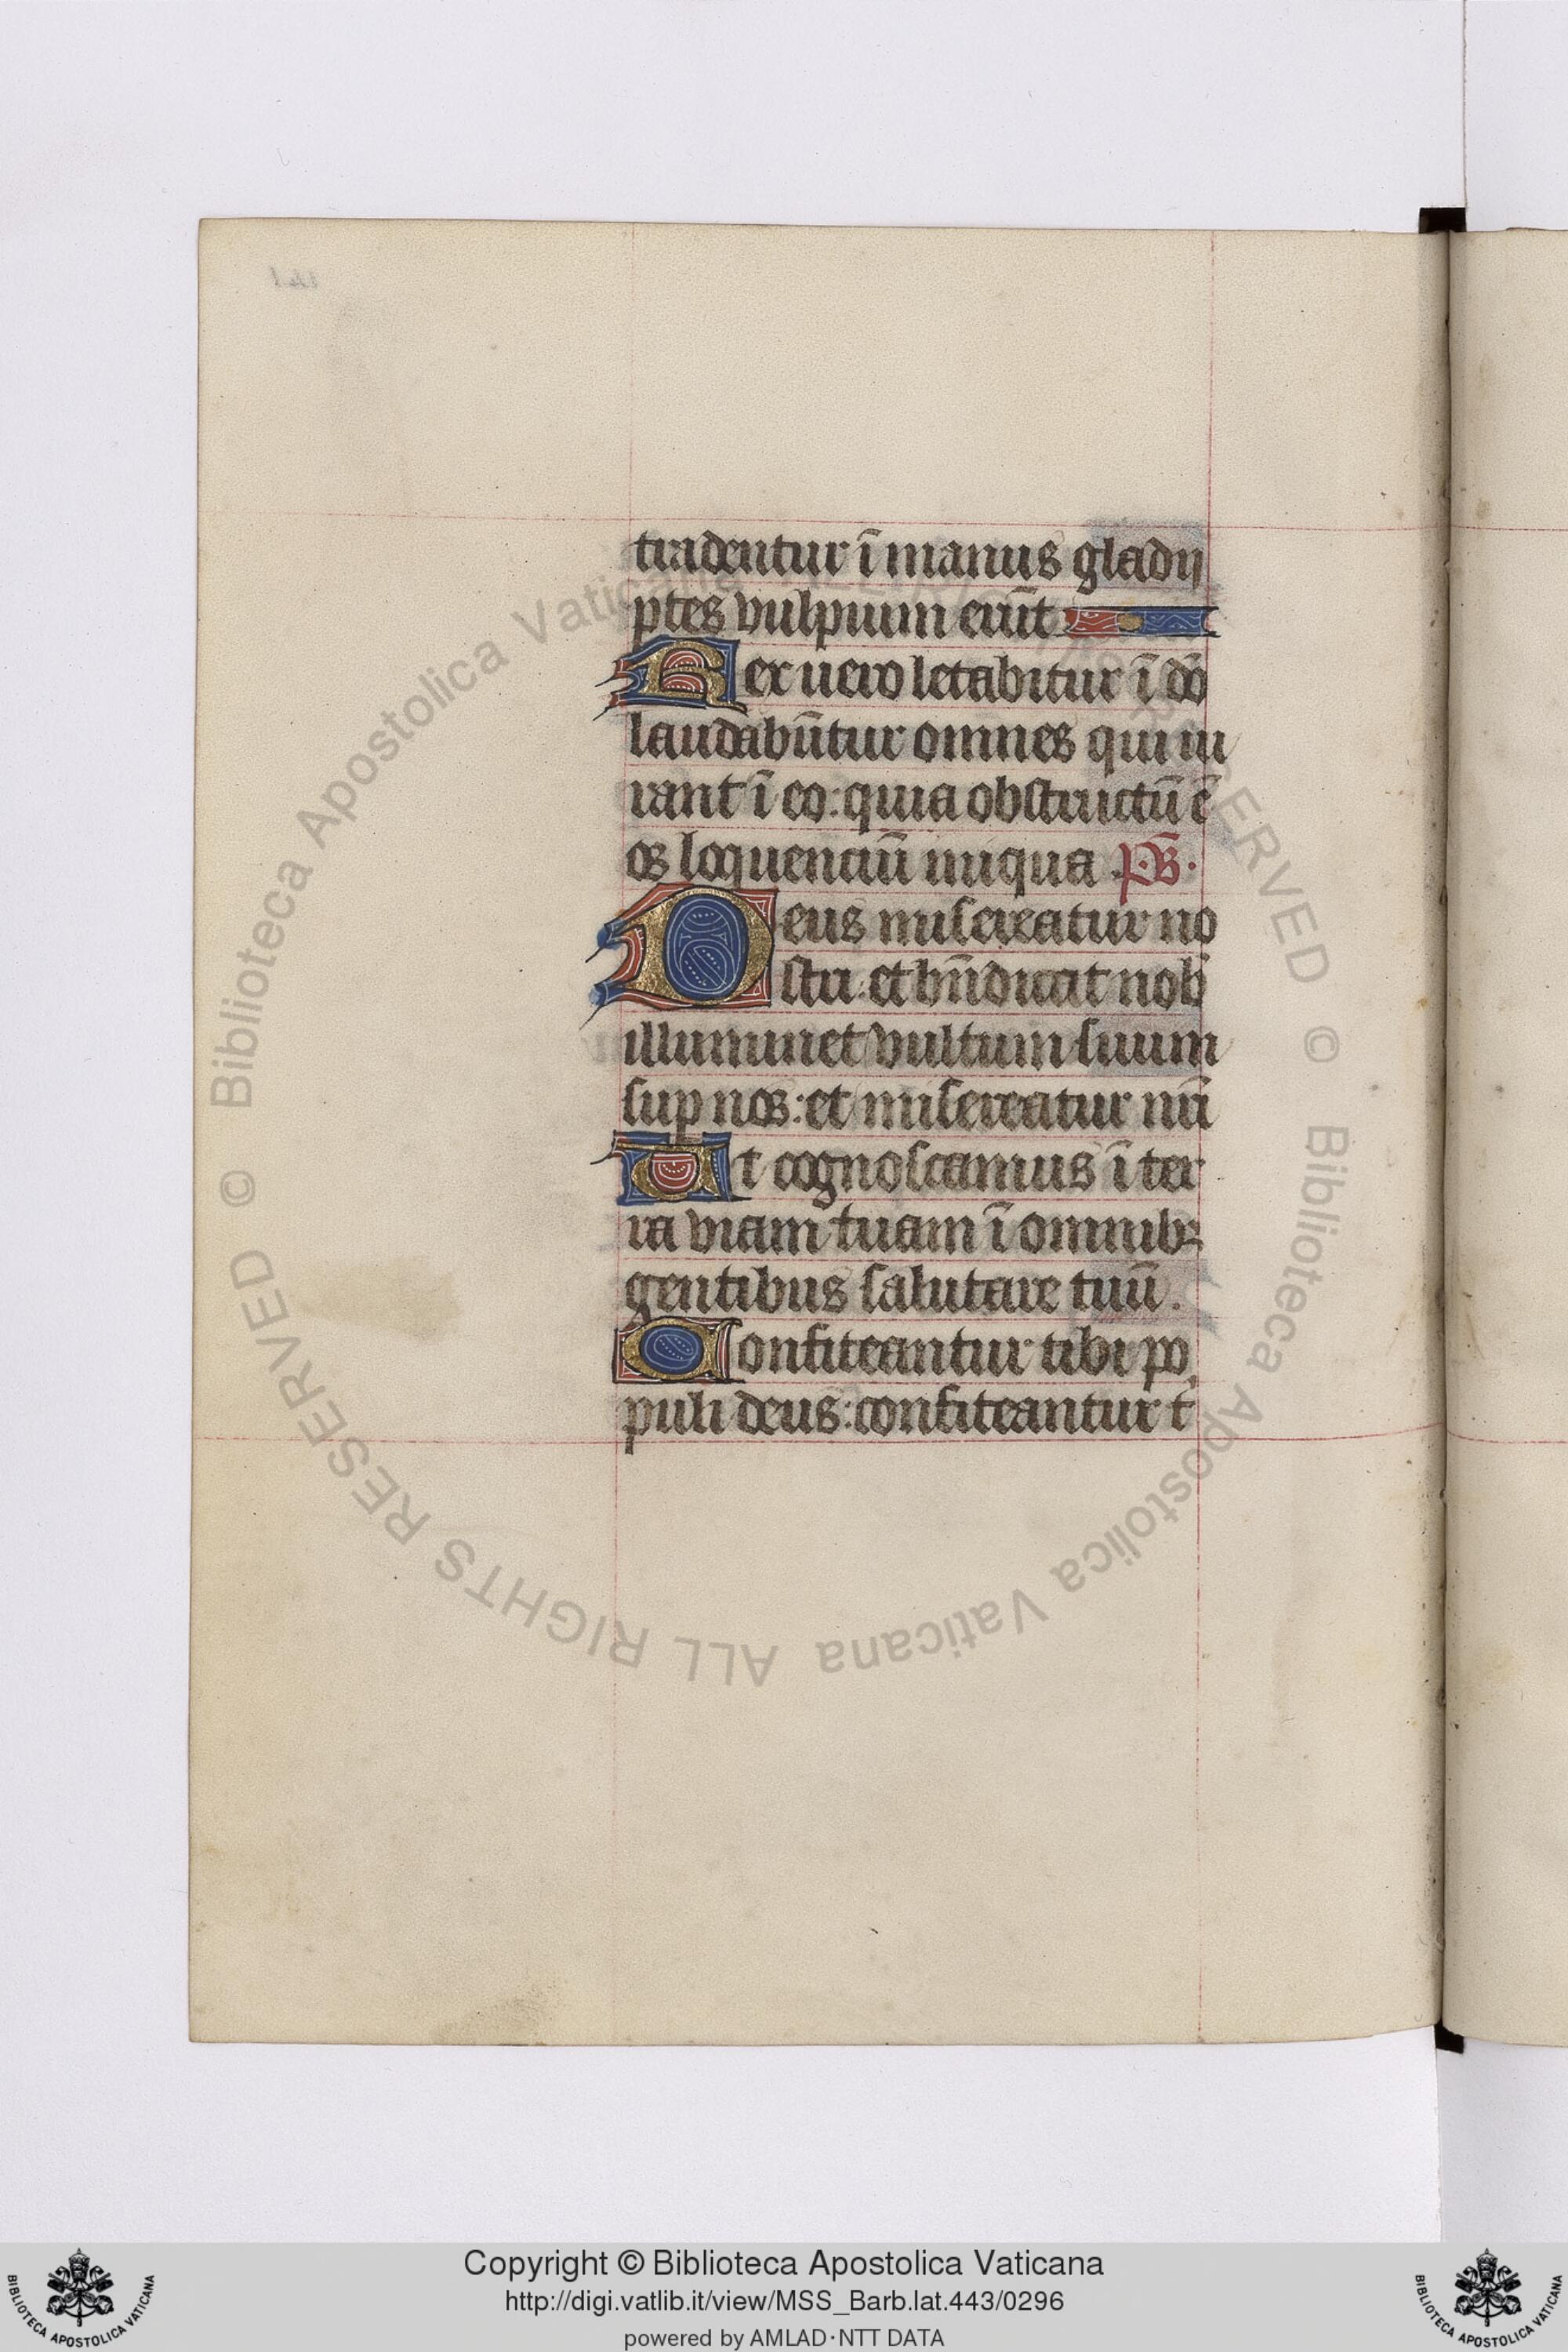 tradentur ī manus gladii
ꝑtes vulpium erūt
Rex uero letabitur ī dō
laudabūtur omnes qui iu
rant ī eo: quia obstructū ē
os loquenciū iniqua .ps̄.
Deus misereatur no
stri: et bn̄dicat nob̄
illuminet vultum suum
suꝑ nos: et misereatur nr̄i
Ut cognoscamus ī ter
ra viam tuam ī omnibꝫ
gentibus salutare tuū.
Confiteantur tibi po
puli deus: confiteantur t̄
© Biblioteca Apostolica Vaticana ALL RIGHTS RESERVED
© Biblioteca Apostolica Vaticana ALL RIGHTS RESERVED
Copyright © Biblioteca Apostolica Vaticana
http://digi.vatlib.it/view/MSS_Barb.lat.443/0296
powered by AMLAD·NTT DATA
BIBLIOTECA APOSTOLICA VATICANA
BIBLIOTECA APOSTOLICA VATICANA